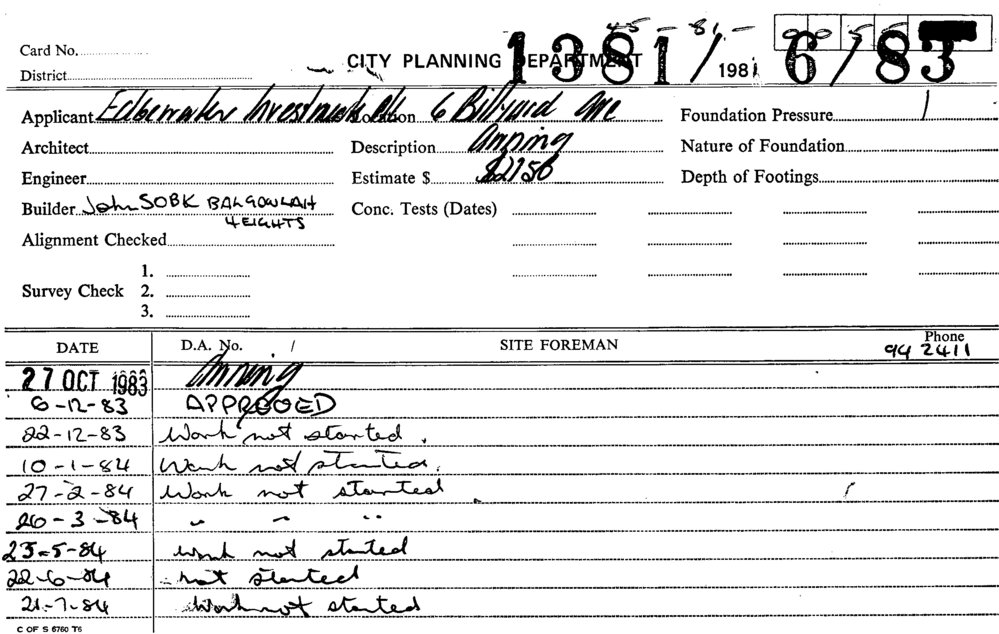 45-81-
Card No.
CITY PLANNING DEPARTMENT
1381/1981 6/83
District
Applicant Edgewater Investments P/L Location 6 Billyard Ave Foundation Pressure
Architect Description Awning Nature of Foundation
Engineer Estimate $ $2750 Depth of Footings
Builder John SOBK BALGOWLAH HEIGHTS Conc. Tests (Dates)
Alignment Checked
1.
Survey Check 2.
3.
DATE D.A. No. / SITE FOREMAN Phone 94 2411
27 OCT 1983 Awning
6-12-83 APPROVED
22-12-83 Work not started.
10-1-84 Work not started.
27-2-84 Work not started
26-3-84 " " "
23-5-84 work not started
22-6-84 not started
21-7-84 Work not started
C OF S 6760 T6